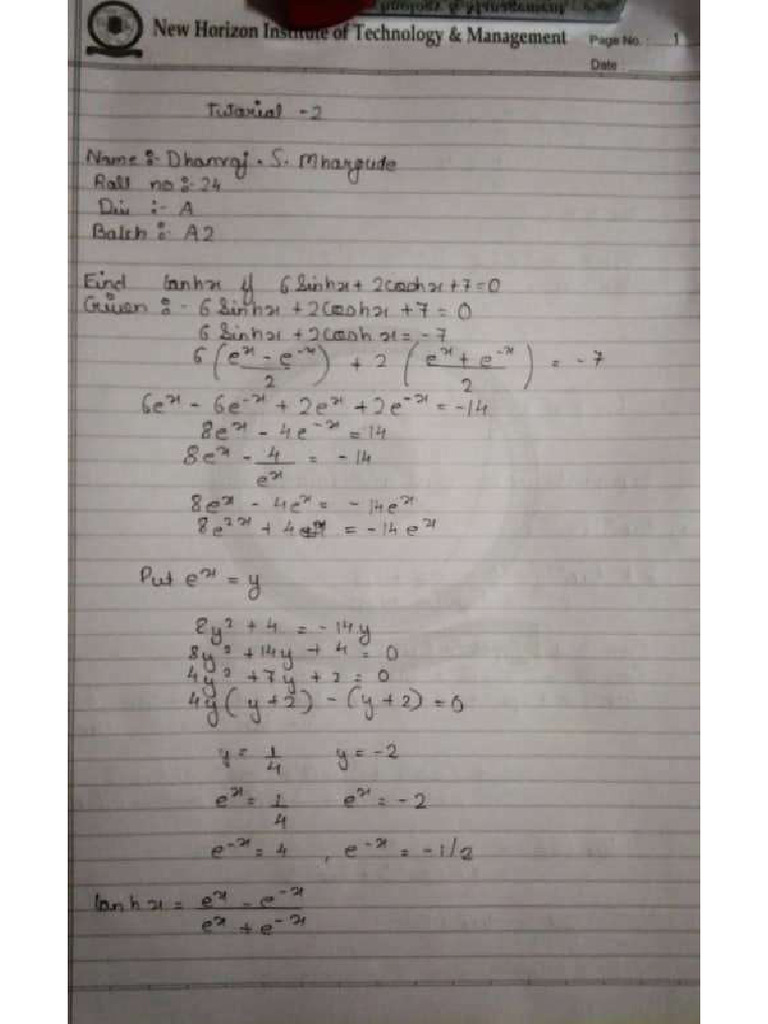 New Horizon Institute of Technology & Management Page No. : 1
Date :
Tutorial - 2
Name :- Dhanraj . S. Mhargude
Roll no :- 24
Div :- A
Batch : A2
Find tanhx if 6 Sinhx + 2coshx + 7 = 0
Given :- 6 Sinhx + 2Coshx + 7 = 0
6 Sinhx + 2cosh x = - 7
6 ( e^x - e^-x / 2 ) + 2 ( e^x + e^-x / 2 ) = - 7
6e^x - 6e^-x + 2e^x + 2e^-x = -14
8e^x - 4e^-x = 14
8e^x - 4 / e^x = - 14
8e^x - 4e^x = - 14e^x
8e^2x + 4 = - 14 e^x
Put e^x = y
8y^2 + 4 = - 14y
8y^2 + 14y + 4 = 0
4y^2 + 7y + 2 = 0
4y ( y + 2 ) - ( y + 2 ) = 0
y = 1/4 y = -2
e^x = 1/4 e^x = - 2
e^-x = 4 , e^-x = -1/2
tanh x = e^x - e^-x / e^x + e^-x